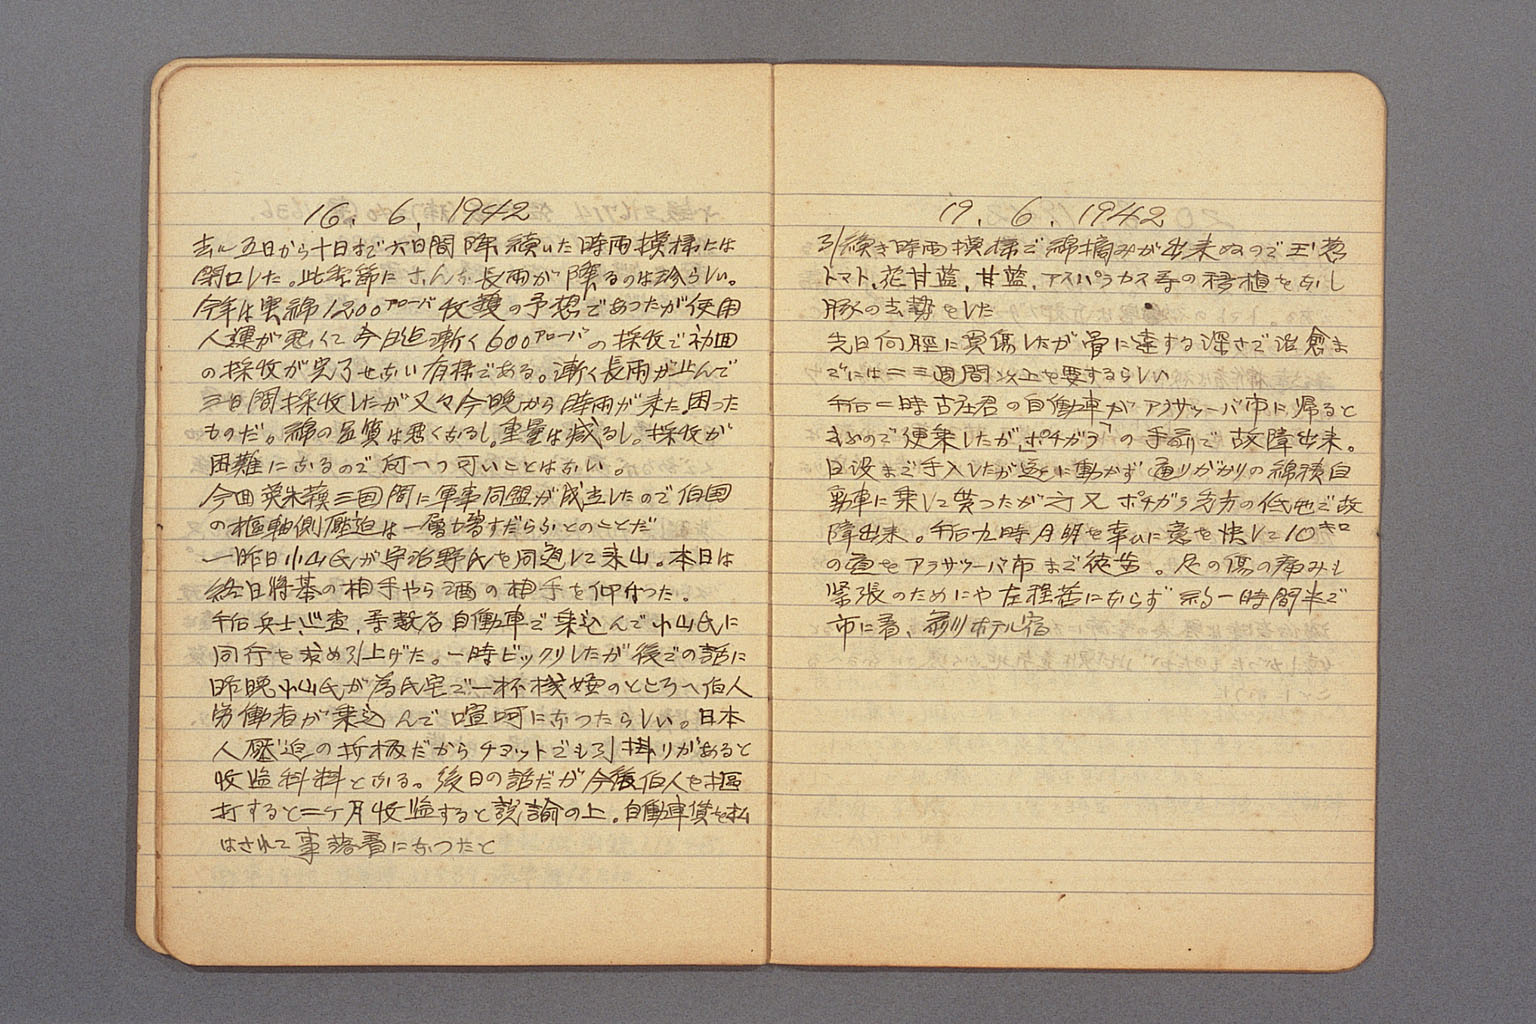 16. 6. 1942
去ル五日から十日まで六日間降り續いた時雨模様には
閉口した。此季節にこんな長雨が降るのは珍らしい。
今年は実綿1200アローバ收穫の予想であつたが使用
人運が悪くて今日迠漸く600アローバの採收で初回
の採收が完了せない有様である。漸く長雨が止んで
三日間採收したが又々今晩から時雨が来た。困った
ものだ。綿の品質は悪くなるし、重量は減るし。採收が
困難になるので何一つ可いことはない。
今回英米蘓三国間に軍事同盟が成立したので伯国
の枢軸側壓迫は一層増すだらふとのことだ
一昨日小山氏が宇治野氏を同道して来山。本日は
終日将棊の相手やら酒の相手を仰せつた。
午后兵士、巡査、 自働車で乗込んで小山氏に
同行を求め引上げた。一時ビックリしたが後での話に
昨晩小山氏が 氏宅で一杯機嫌のところへ伯人
労働者が乗込んで喧呵になつたらしい。日本
人壓迫の折柄だからチョットでも引掛りがあると
收監科料となる。後日の話だが今後伯人を毆
打すると二ケ月收監すると説諭の上。自働車賃を払
はされて事落着になつたと
19. 6. 1942
引続き時雨模様で綿摘みが出来ぬので玉葱
トマト、花甘藍、甘藍、アスパラカス等の移植をなし
豚の去勢をした
先日向脛に負傷したが骨に達する深さで治癒ま
でには二三週間以上を要するらしい
午后二時古庄君の自働車がアラサツーバ市に帰ると
言ふので便乗したが「ポチガラ」の手前で故障出来。
日没まで手入したが遂に動かず通りがかりの綿積自
動車に乗して貰つたが 又ポチガラ先方の低地で故
障出来。午后九時月明を幸ひに意を決して10キロ
の道をアラサツーバ市まで徒歩。足の傷の痛みも
緊張のためにや左程苦にならず約一時間半で
市に着、前川ホテル宿